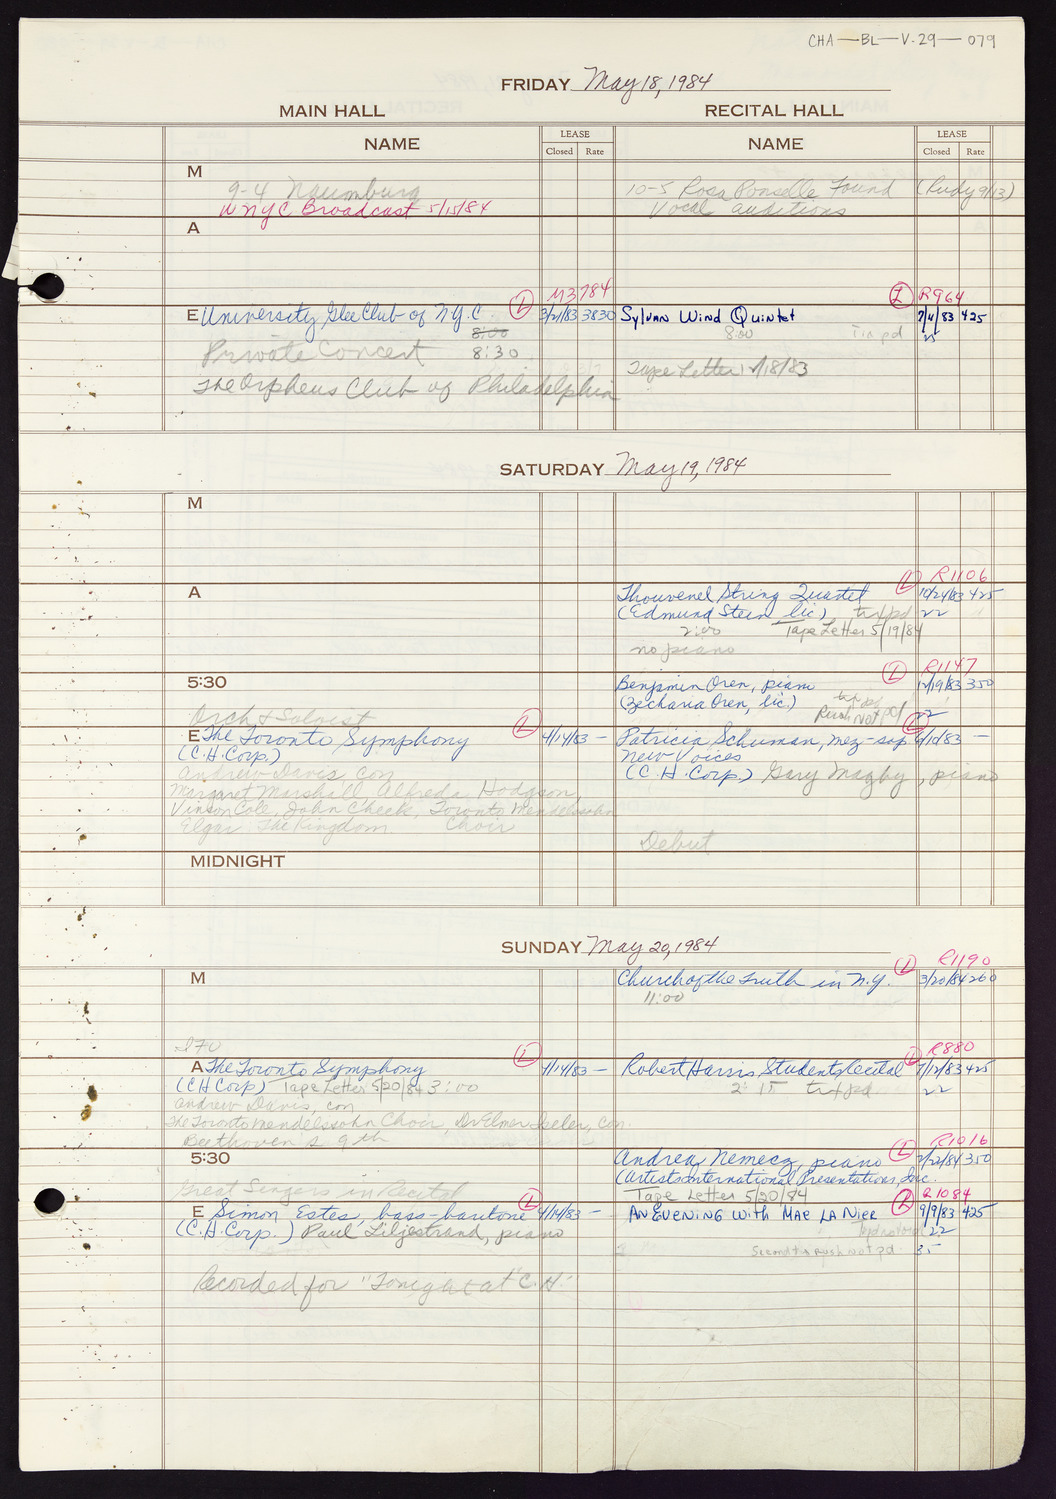 CHA-BL-V.29-079
FRIDAY May 18, 1984
MAIN HALL RECITAL HALL
NAME LEASE NAME LEASE
Closed Rate Closed Rate
M
9-4 Naumburg 10-5 Rosa Ponselle Found (Rudy 9/13)
WNYC Broadcast 5/15/84 Vocal auditions
A
L M3784 L R964
E University Glee Club of N.Y.C 3/21/83 3830 Sylvan Wind Quintet 7/4/83 425
8:00 8:00
Private Concert 8:30
Tape Letter
The Orpheus Club of Philadelphia
SATURDAY May 19, 1984
M
L R1106
A Thouvenel String Quartet 10/24/83 425
(Edmund Stein, lic) tx pd 22
2:00 Tape Letter 5/19/84
no piano
L R1147
5:30 Benjamin Oren, piano 12/19/83 350
(Zecharia Oren, lic.) 22
Rush Not pd
Orch & Soloist L L
E The Toronto Symphony 4/14/83 — Patricia Schuman, mez-sop —
(C.H.Corp.) New Voices
(C.H.Corp.) Gary Magby, piano
Andrew Davis, con
Margaret Marshall, Alfreda Hodgson,
Vinson Cole, John Cheek, Toronto Mendelssohn
Elgar The Kingdom Choir
Debut
MIDNIGHT
SUNDAY May 20, 1984
L R1190
M Church of the Truth in N.Y. 3/20/84 260
11:00
L L R880
A The Toronto Symphony 4/14/83 — Robert Harris Students Recital 7/12/83 425
(CH Corp) Tape Letter 5/20/84 3:00 2:15 tx pd 22
Andrew Davis, con
The Toronto Mendelssohn Choir, Dr Elmer Iseler, con.
Beethoven's 9th
L R1016
5:30 Andrea Nemecz, piano 2/22/84 350
(Artists International Presentations, Inc.
Great Singers in Recital Tape Letter 5/20/84
L L R1084
E Simon Estes, bass-baritone 4/14/83 — An Evening with Mae La Nier 9/9/83 425
(C.H.Corp.) Paul Liljestrand, piano 22
Rush Not pd 35
Recorded for "Tonight at C.H."